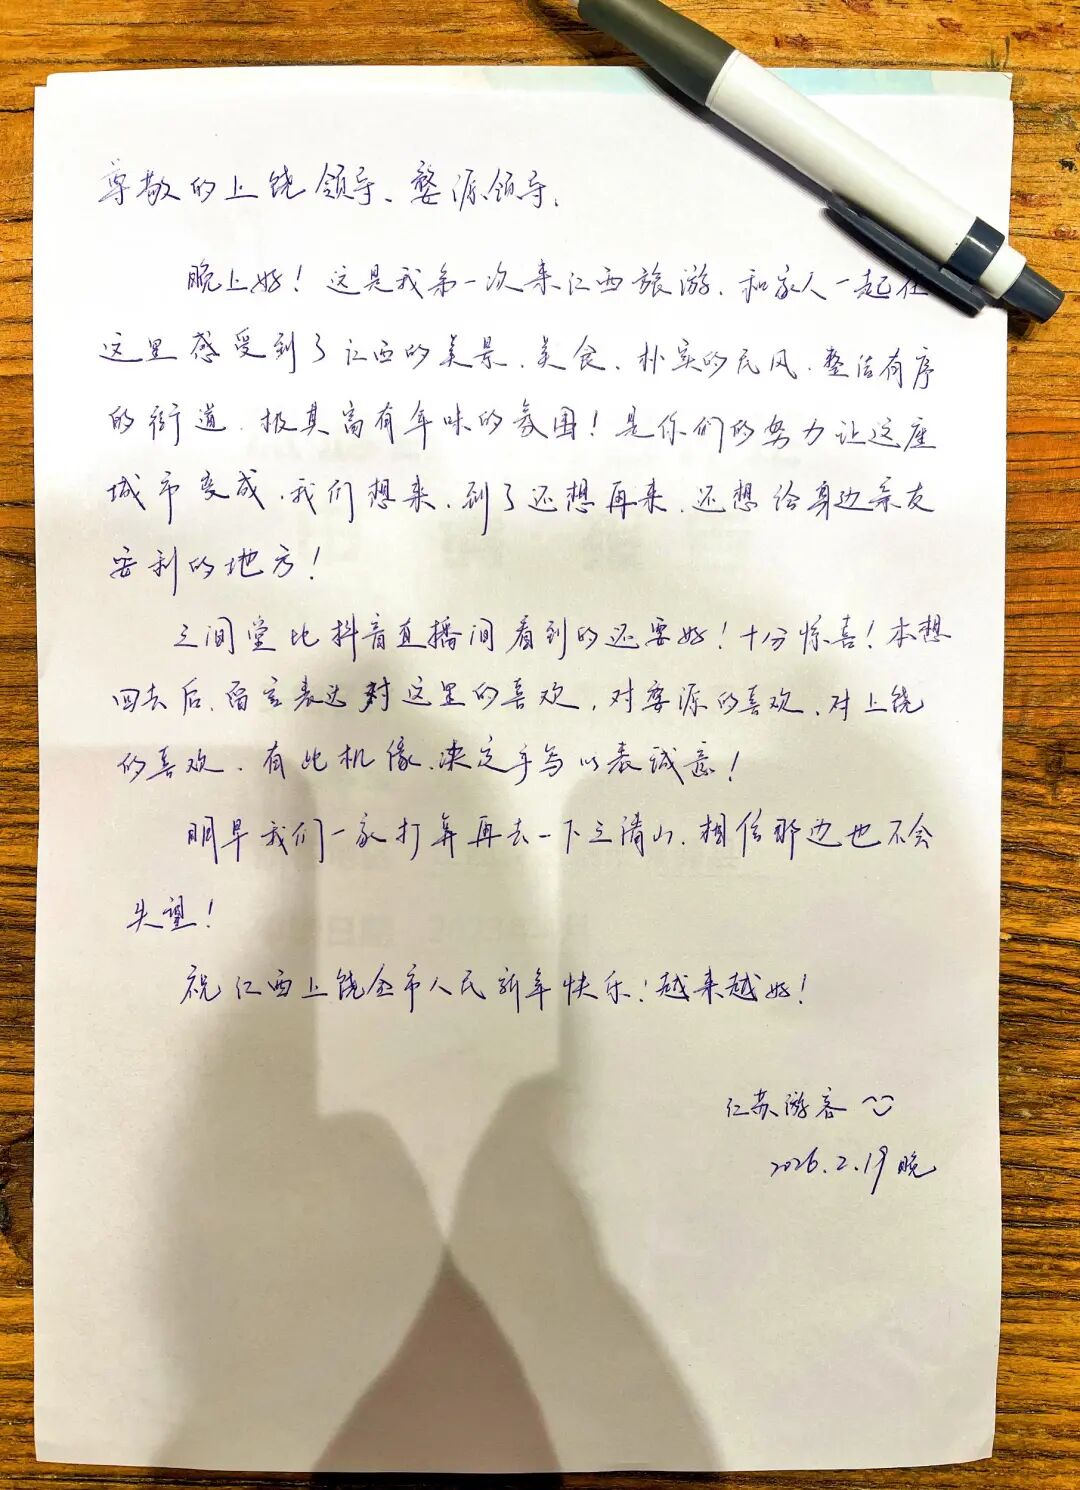 尊敬的上饶领导、婺源领导、
晚上好！这是我第一次来江西旅游、和家人一起在
这里感受到了江西的美景、美食、朴实的民风、整洁有序
的街道、极其富有年味的氛围！是你们的努力让这座
城市变成、我们想来、到了还想再来、还想给身边亲友
安利的地方！
三间堂比抖音直播间看到的还要好！十分惊喜！本想
回去后、留言表达对这里的喜欢、对婺源的喜欢、对上饶
的喜欢、有此机缘、决定手写以表诚意！
明早我们一家打算再去一下三清山、相信那边也不会
失望！
祝江西上饶全市人民新年快乐！越来越好！
江苏游客
2026.2.19晚